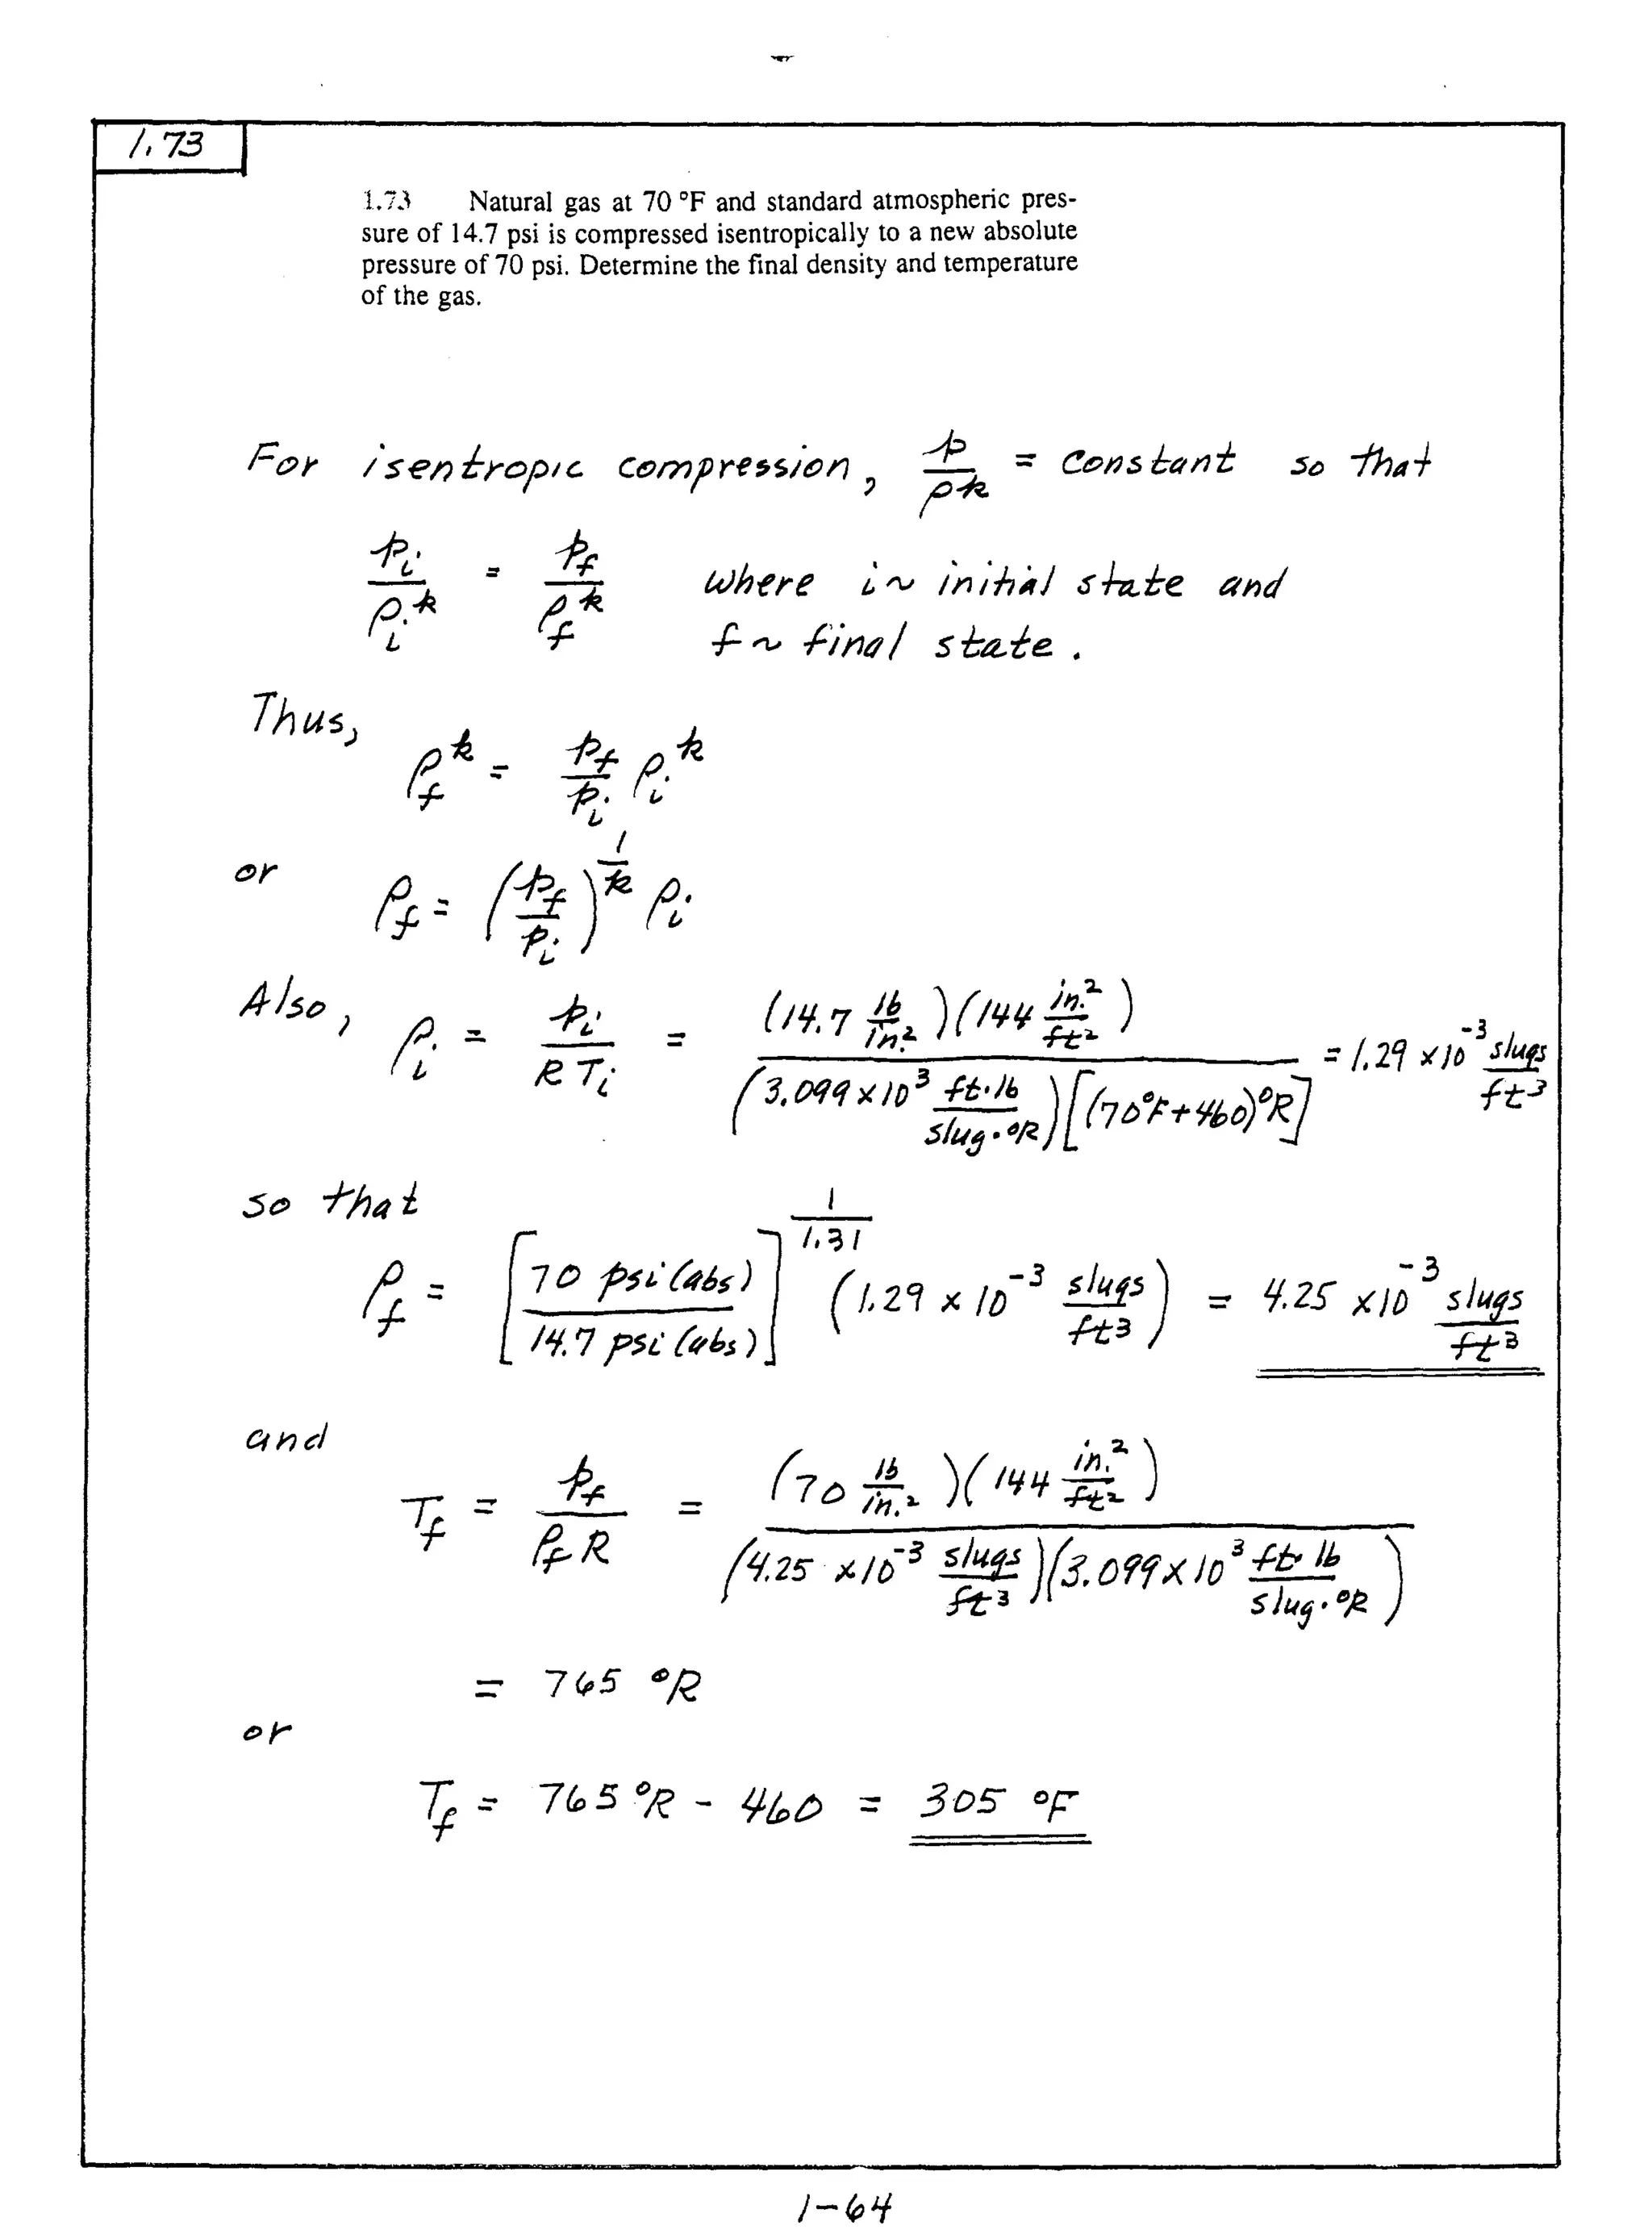 1.73
1.73 Natural gas at 70 °F and standard atmospheric pres-
sure of 14.7 psi is compressed isentropically to a new absolute
pressure of 70 psi. Determine the final density and temperature
of the gas.
For isentropic compression, p/ρ^k = constant so that
p_i/ρ_i^k = p_f/ρ_f^k where i ~ initial state and
f ~ final state.
Thus,
ρ_f^k = p_f/p_i ρ_i^k
or ρ_f = (p_f/p_i)^(1/k) ρ_i
Also, ρ_i = p_i/RT_i = (14.7 lb/in.²)(144 in.²/ft²) / (3.099 x 10³ ft·lb/slug·°R)[(70°F + 460)°R] = 1.29 x 10⁻³ slugs/ft³
so that
ρ_f = [70 psi (abs) / 14.7 psi (abs)]^(1/1.31) (1.29 x 10⁻³ slugs/ft³) = 4.25 x 10⁻³ slugs/ft³
and
T_f = p_f/ρ_f R = (70 lb/in.²)(144 in.²/ft²) / (4.25 x 10⁻³ slugs/ft³)(3.099 x 10³ ft·lb/slug·°R)
= 765 °R
or
T_f = 765 °R - 460 = 305 °F
1-64